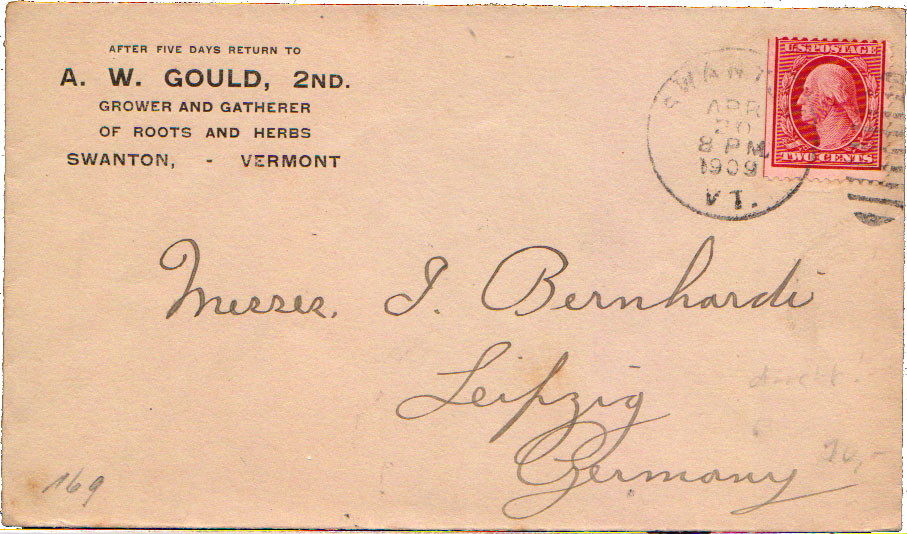 AFTER FIVE DAYS RETURN TO
A. W. GOULD, 2ND.
GROWER AND GATHERER
OF ROOTS AND HERBS
SWANTON, - VERMONT
SWANT
APR
20
8 PM
1909
VT.
U.S. POSTAGE
TWO CENTS
Messrs. J. Bernhardi
Leipzig
Germany
direkt!
20,-
169